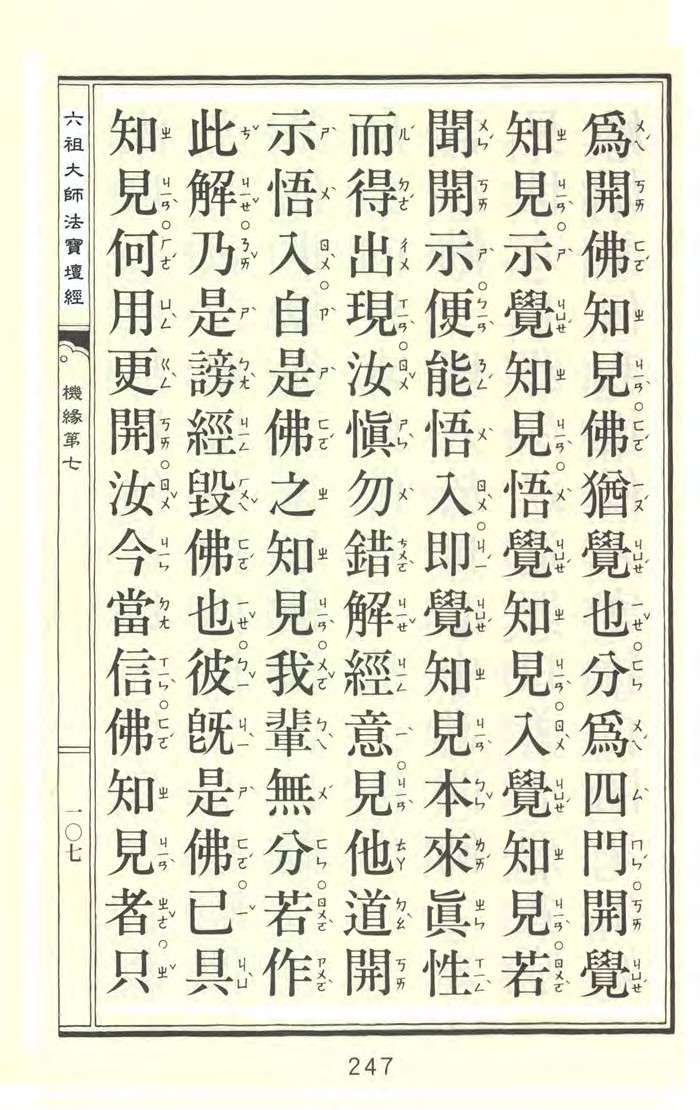 為開佛知見。佛猶覺也。分為四門。開覺
知見。示覺知見。悟覺知見。入覺知見。若
聞開示。便能悟入。即覺知見。本來眞性
而得出現。汝慎勿錯解經意。見他道開
示悟入。自是佛之知見。我輩無分。若作
此解。乃是謗經毀佛也。彼既是佛。已具
知見。何用更開。汝今當信。佛知見者。只
六祖大師法寶壇經
機緣第七
一〇七
247